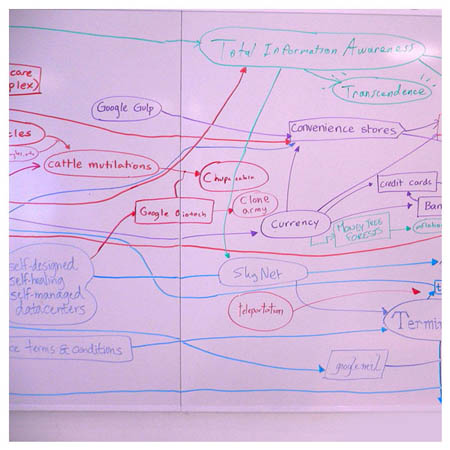 Total Information Awareness
care
plex)
Transcendence
Google Gulp
Convenience stores
cles
cattle mutilations
Chupacabra
Clone
army
credit cards
Google Biotech
Ban
Currency
MONEY TREE
FORESTS
inflation
self-designed
self-healing
self-managed
datacenters
SkyNet
teleportation
Termin
ce terms & conditions